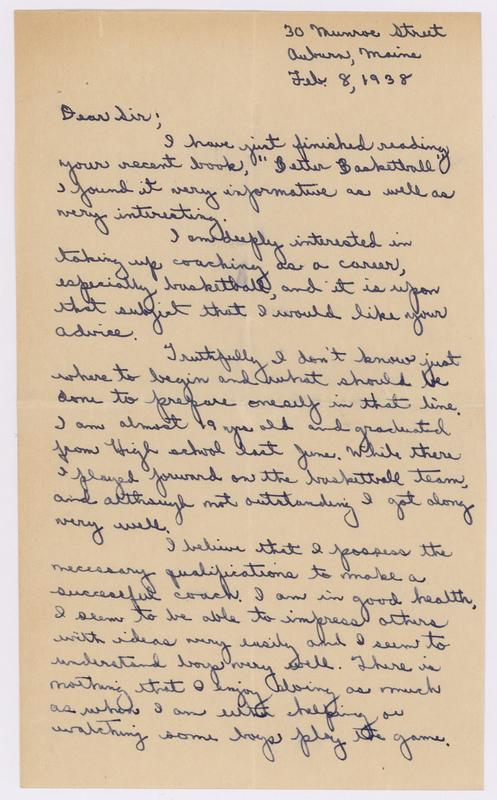 30 Munroe Street
Auburn, Maine
Feb. 8, 1938
Dear Sir;
I have just finished reading
your recent book, "Better Basketball".
I found it very informative as well as
very interesting.
I am deeply interested in
taking up coaching as a career,
especially basketball, and it is upon
that subject that I would like your
advice.
Truthfully I don't know just
where to begin and what should be
done to prepare oneself in that line.
I am almost 19 yrs old and graduated
from High school last June. While there
I played forward on the basketball team,
and although not outstanding I got along
very well.
I believe that I possess the
necessary qualifications to make a
successful coach. I am in good health,
I seem to be able to impress others
with ideas very easily and I seem to
understand boys very well. There is
nothing that I enjoy doing as much
as when I am either helping or
watching some boys play the game.